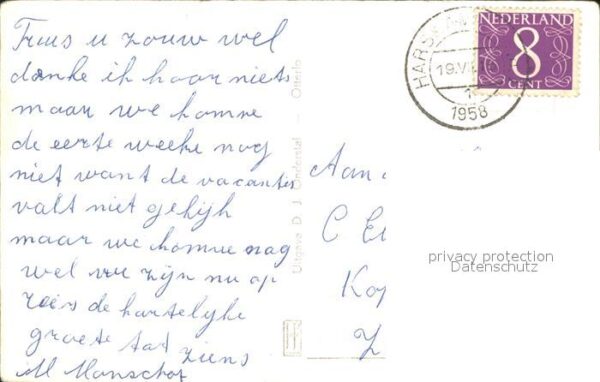 Truus u zouw wel
danke ik hoor niets
maar we komme
de eerte weeke nog
niet want de vacantis
valt niet gelijh
maar we komme nog
wel we zijn nu op
reis de hartelyke
groete tot ziens
M Manschot
Uitgave D. J. Onderstal — Otterlo
HARS
19.VI
1
1958
NEDERLAND
8
CENT
Aan
C E
Kop
Z
privacy protection
Datenschutz